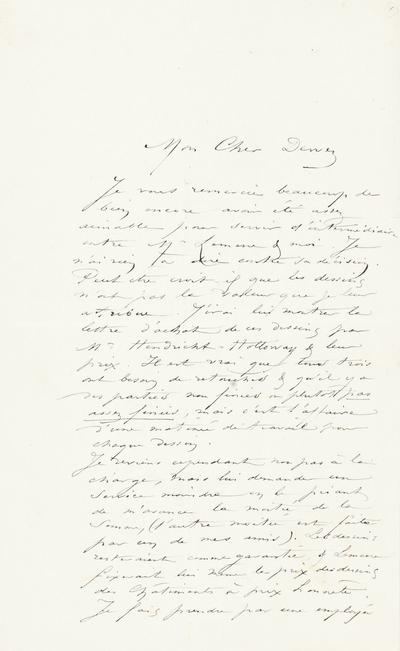 Mon Cher Derrez
Je vous remercie beaucoup de
bien encore avoir été assez
aimable pour servir d'intermédiaire
entre Mr Lemerre & moi. Je
n'ai rien à dire contre sa décision.
Peut être croit il que les dessins
n'ont pas la valeur que je leur
attribue. J'irai lui montrer la
lettre d'achat de ces dessins par
Mr Hendricht-Holloway & leur
prix. Il est vrai que tous trois
ont besoin de retouches & qu'il y a
des parties non finies ou plutôt pas
assez finies, mais c'est l'affaire
d'une matinée de travail pour
chaque dessin.
Je reviens cependant non pas à la
charge, mais lui demande un
service moindre en le priant
de m'avancer la moitié de la
somme, (l'autre moitié est faite
par un de mes amis). Les dessins
resteraient comme garantie, & Lemerre
fixerait lui même le prix des dessins
des Châtiments à prix honnête.
Je fais prendre par une employé